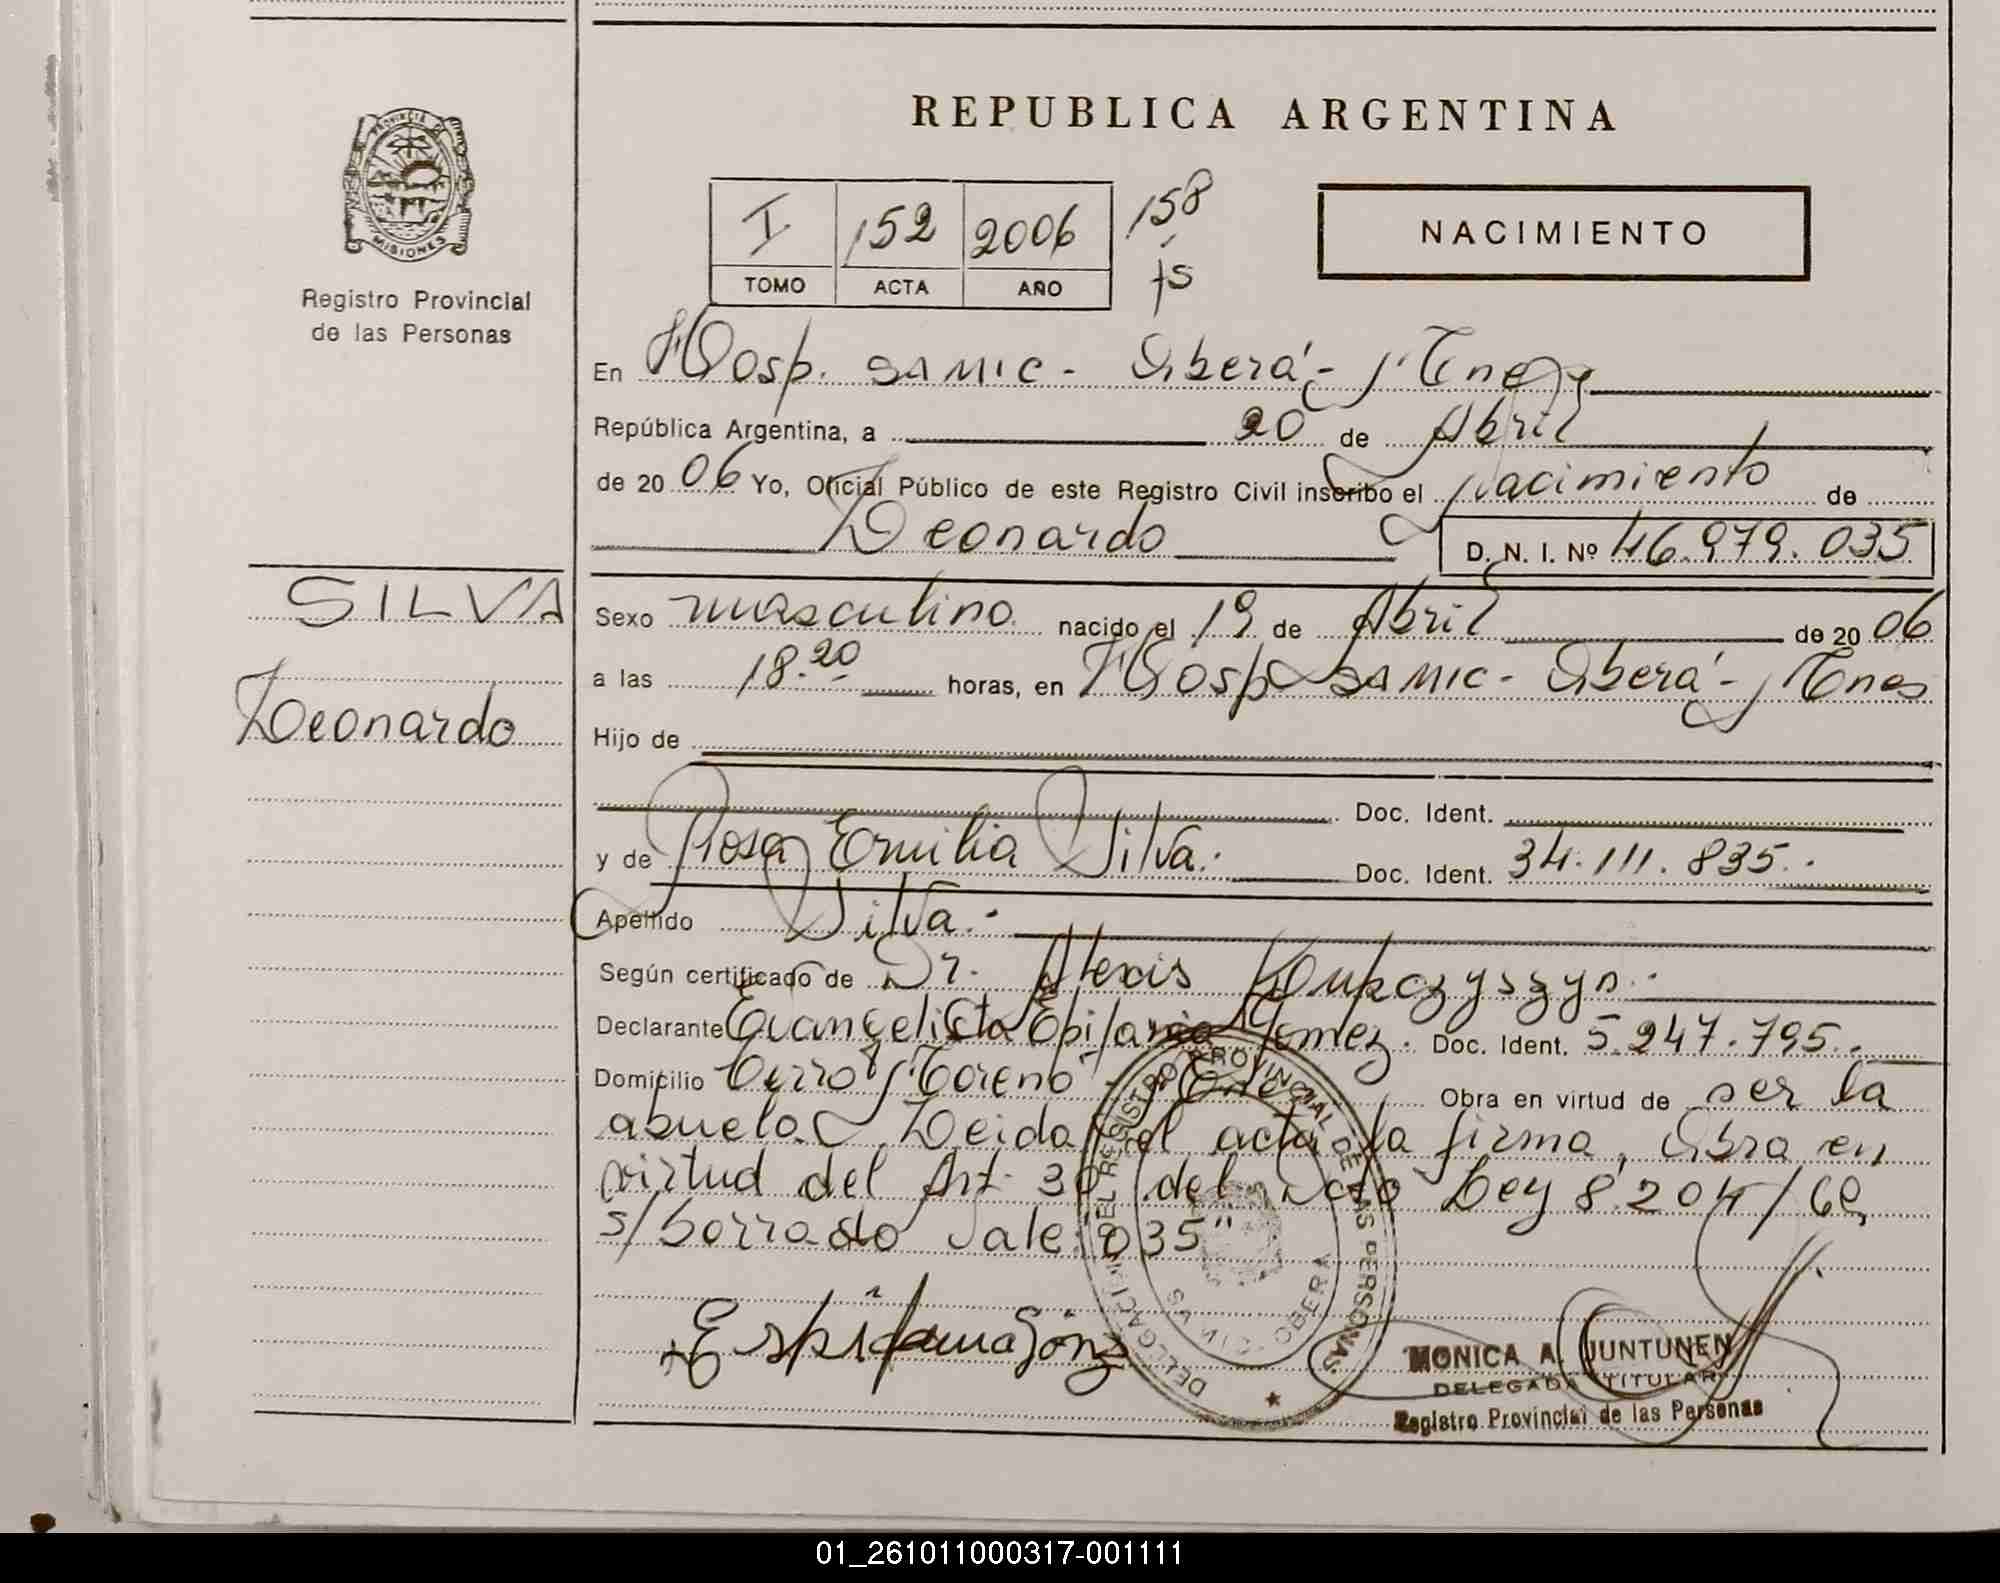 REPUBLICA ARGENTINA
PROVINCIA DE
MISIONES
Registro Provincial
de las Personas
I 152 2006
TOMO ACTA AÑO
158
fs
NACIMIENTO
En Hosp. SAMIC - Oberá - Mnes
República Argentina, a 20 de Abril
de 2006 Yo, Oficial Público de este Registro Civil inscribo el Nacimiento de
Leonardo D. N. I. Nº 46.979.035
SILVA
Leonardo
Sexo masculino nacido el 19 de Abril de 2006
a las 18.20 horas, en Hosp SAMIC - Oberá - Mnes
Hijo de
Doc. Ident.
y de Rosa Emilia Silva. Doc. Ident. 34.111.835.
Apellido Silva.
Según certificado de Dr. Alexis
Declarante Evangelista Epifania Gomez. Doc. Ident. 5.247.795.
Domicilio Cerro Moreno - Mnes Obra en virtud de ser la
abuela. Leida el acta la firma, Obra en
virtud del Art. 30 del Dcto Ley 8.204/63,
s/borrado Vale "035"
Epifania Gómez
DELEGACION DEL REGISTRO PROVINCIAL DE LAS PERSONAS
OBERA
MONICA A. JUNTUNEN
DELEGADA TITULAR
Registro Provincial de las Personas
01_261011000317-001111